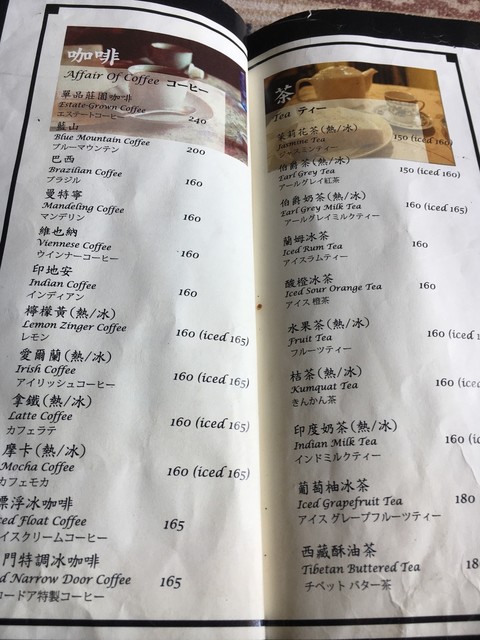 咖啡
Affair Of Coffee コーヒー
單品莊園咖啡
Estate-Grown Coffee 240
エステートコーヒー
藍山
Blue Mountain Coffee 200
ブルーマウンテン
巴西
Brazilian Coffee 160
ブラジル
曼特寧
Mandeling Coffee 160
マンデリン
維也納
Viennese Coffee 160
ウインナーコーヒー
印地安
Indian Coffee 160
インディアン
檸檬黃(熱/冰)
Lemon Zinger Coffee 160 (iced 165)
レモン
愛爾蘭(熱/冰)
Irish Coffee 160 (iced 165)
アイリッシュコーヒー
拿鐵(熱/冰)
Latte Coffee 160 (iced 165)
カフェラテ
摩卡(熱/冰)
Mocha Coffee 160 (iced 165)
カフェモカ
漂浮冰咖啡
ced Float Coffee 165
イスクリームコーヒー
門特調冰咖啡
d Narrow Door Coffee 165
ロードア特製コーヒー
茶
Tea ティー
茉莉花茶(熱/冰)
Jasmine Tea 150 (iced 160)
ジャスミンティー
伯爵茶(熱/冰)
Earl Grey Tea 150 (iced 160)
アールグレイ紅茶
伯爵奶茶(熱/冰)
Earl Grey Milk Tea 160 (iced 165)
アールグレイミルクティー
蘭姆冰茶
Iced Rum Tea 160
アイスラムティー
酸橙冰茶
Iced Sour Orange Tea 160
アイス 橙茶
水果茶(熱/冰)
Fruit Tea 160 (iced 1
フルーツティー
桔茶(熱/冰)
Kumquat Tea 160 (iced
きんかん茶
印度奶茶(熱/冰)
Indian Milk Tea 160 (ic
インドミルクティー
葡萄柚冰茶
Iced Grapefruit Tea 180
アイス グレープフルーツティー
西藏酥油茶
Tibetan Buttered Tea 18
チベット バター茶